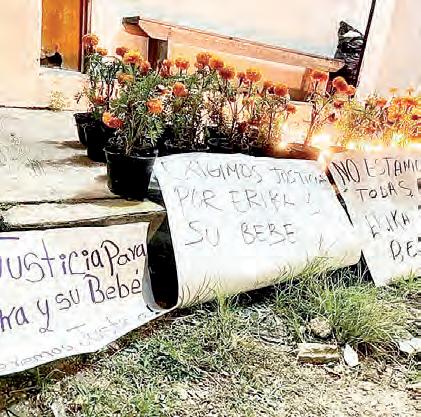 Justicia Para
y su Bebé
EXIGIMOS JUSTICIA
POR ERIKA Y
SU BEBE
NO ESTAMOS
TODAS